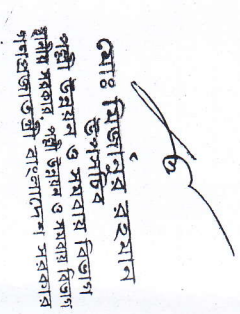 মোঃ মিজানুর রহমান
উপসচিব
পল্লী উন্নয়ন ও সমবায় বিভাগ
স্থানীয় সরকার, পল্লী উন্নয়ন ও সমবায় বিভাগ
গণপ্রজাতন্ত্রী বাংলাদেশ সরকার